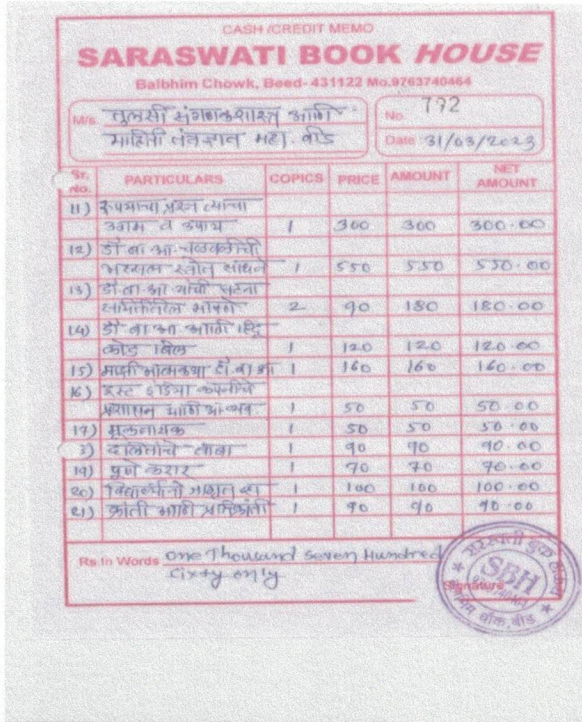 CASH / CREDIT MEMO
SARASWATI BOOK HOUSE
Balbhim Chowk, Beed- 431122 Mo.9763740464
M/s. तुलसी संगणकशास्त्र आणि
No. 792
माहिती तंत्रज्ञान महा. बीड
Date 31/03/2023
Sr. No. PARTICULARS COPICS PRICE AMOUNT NET AMOUNT
11) रुपयाचा प्रश्न त्याचा
उगम व उपाय 1 300 300 300.00
12) डॉ बा आ चळवळीची
स्त्रोत साधने 1 550 550 550.00
13) डॉ बा आ यांची घटना
समितीतील भाषणे 2 90 180 180.00
14) डॉ बा आ आणि हिंदू
कोड बिल 1 120 120 120.00
15) माझी आत्मकथा डॉ. बा आ 1 160 160 160.00
16) इस्ट इंडिया कंपनीचे
प्रशासन आणि 1 50 50 50.00
17) मूकनायक 1 50 50 50.00
दलितांचे बाबा 1 90 90 90.00
19) पुणे करार 1 70 70 70.00
20) 1 100 100 100.00
21) क्रांती आणि प्रतिक्रांती 1 90 90 90.00
Rs.In Words One Thousand Seven Hundred
Sixty only
Signature
सरस्वती बुक हाऊस
SBH
चौक, बीड